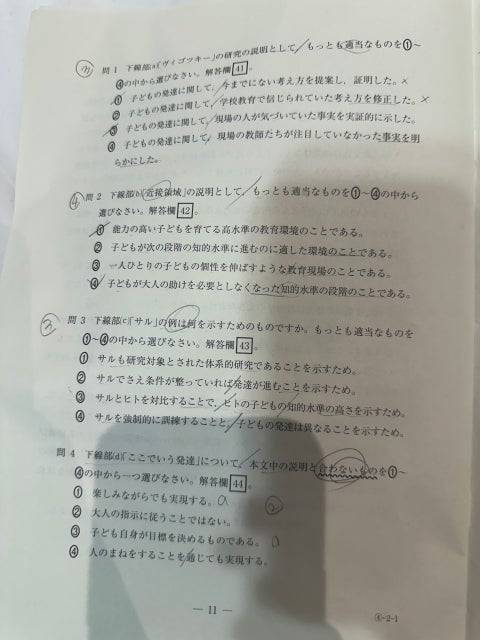 ③ 問1 下線部(a)「ヴィゴツキー」の研究の説明として、もっとも適当なものを①～
④の中から選びなさい。解答欄41。
① 子どもの発達に関して、今までにない考え方を提案し、証明した。×
② 子どもの発達に関して、学校教育で信じられていた考え方を修正した。×
③ 子どもの発達に関して、現場の人が気づいていた事実を実証的に示した。
④ 子どもの発達に関して、現場の教師たちが注目していなかった事実を明
らかにした。
④ 問2 下線部(b)「近接領域」の説明として、もっとも適当なものを①～④の中から
選びなさい。解答欄42。
① 能力の高い子どもを育てる高水準の教育環境のことである。
② 子どもが次の段階の知的水準に進むのに適した環境のことである。
③ 一人ひとりの子どもの個性を伸ばすような教育現場のことである。
④ 子どもが大人の助けを必要としなくなった知的水準の段階のことである。
③ 問3 下線部(c)「サル」の例は何を示すためのものですか。もっとも適当なものを
①～④の中から選びなさい。解答欄43。
① サルも研究対象とされた体系的研究であることを示すため。
② サルでさえ条件が整っていれば発達が進むことを示すため。
③ サルとヒトを対比することで、ヒトの子どもの知的水準の高さを示すため。
④ サルを強制的に訓練することと、子どもの発達は異なることを示すため。
問4 下線部(d)「ここでいう発達」について、本文中の説明と合わないものを①～
④の中から一つ選びなさい。解答欄44。
① 楽しみながらでも実現する。a
② 大人の指示に従うことではない。 ②
③ 子ども自身が目標を決めるものである。
④ 人のまねをすることを通じても実現する。
― 11 ―
④-2-1